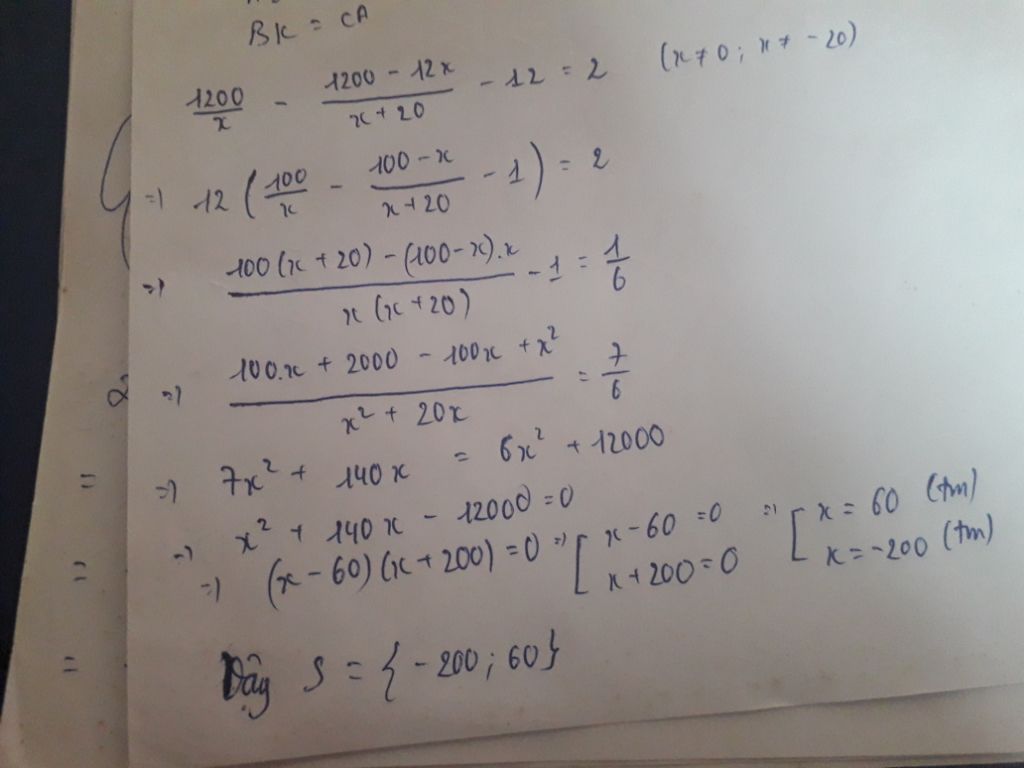 BK = CA
1200/x - (1200 - 12x)/(x + 20) - 12 = 2 (x ≠ 0 ; x ≠ - 20)
=> 12 (100/x - (100 - x)/(x + 20) - 1) = 2
=> (100(x + 20) - (100 - x).x)/(x(x + 20)) - 1 = 1/6
=> (100.x + 2000 - 100x + x²)/(x² + 20x) = 7/6
= => 7x² + 140x = 6x² + 12000
=> x² + 140x - 12000 = 0
= => (x - 60)(x + 200) = 0 => [ x - 60 = 0 ; x + 200 = 0 => [ x = 60 (tm) ; x = -200 (tm)
= Vậy S = { - 200 ; 60 }